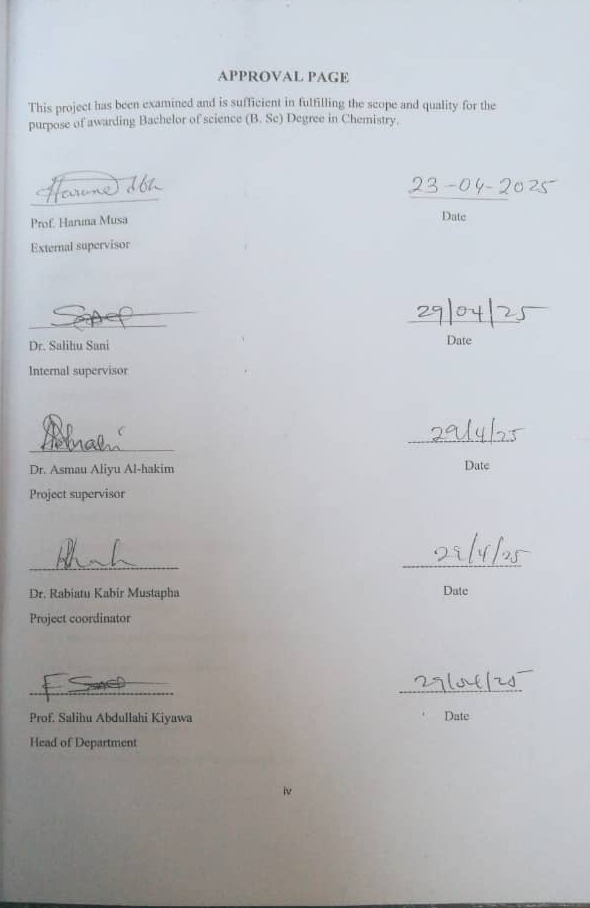 APPROVAL PAGE
This project has been examined and is sufficient in fulfilling the scope and quality for the
purpose of awarding Bachelor of science (B. Sc) Degree in Chemistry.
23-04-2025
Prof. Haruna Musa
Date
External supervisor
29/04/25
Dr. Salihu Sani
Date
Internal supervisor
29/4/25
Dr. Asmau Aliyu Al-hakim
Date
Project supervisor
29/4/25
Dr. Rabiatu Kabir Mustapha
Date
Project coordinator
29/04/25
Prof. Salihu Abdullahi Kiyawa
Date
Head of Department
iv